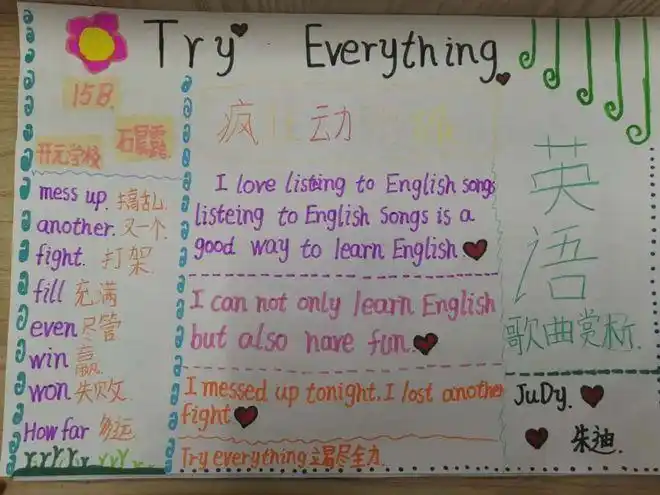 Try Everything
15B.
石晨露
开元学校
mess up. 搞乱
another. 又一个.
fight. 打架
fill 充满
even 尽管
win 赢
won 失败
How far 多远
疯 狂 动 物 城
I love listeing to English songs
listeing to English songs is a
good way to learn English.
I can not only learn English
but also have fun.
I messed up tonight. I lost another
fight
Try everything 竭尽全力.
英
语
歌曲赏析.
JuDy.
朱迪.